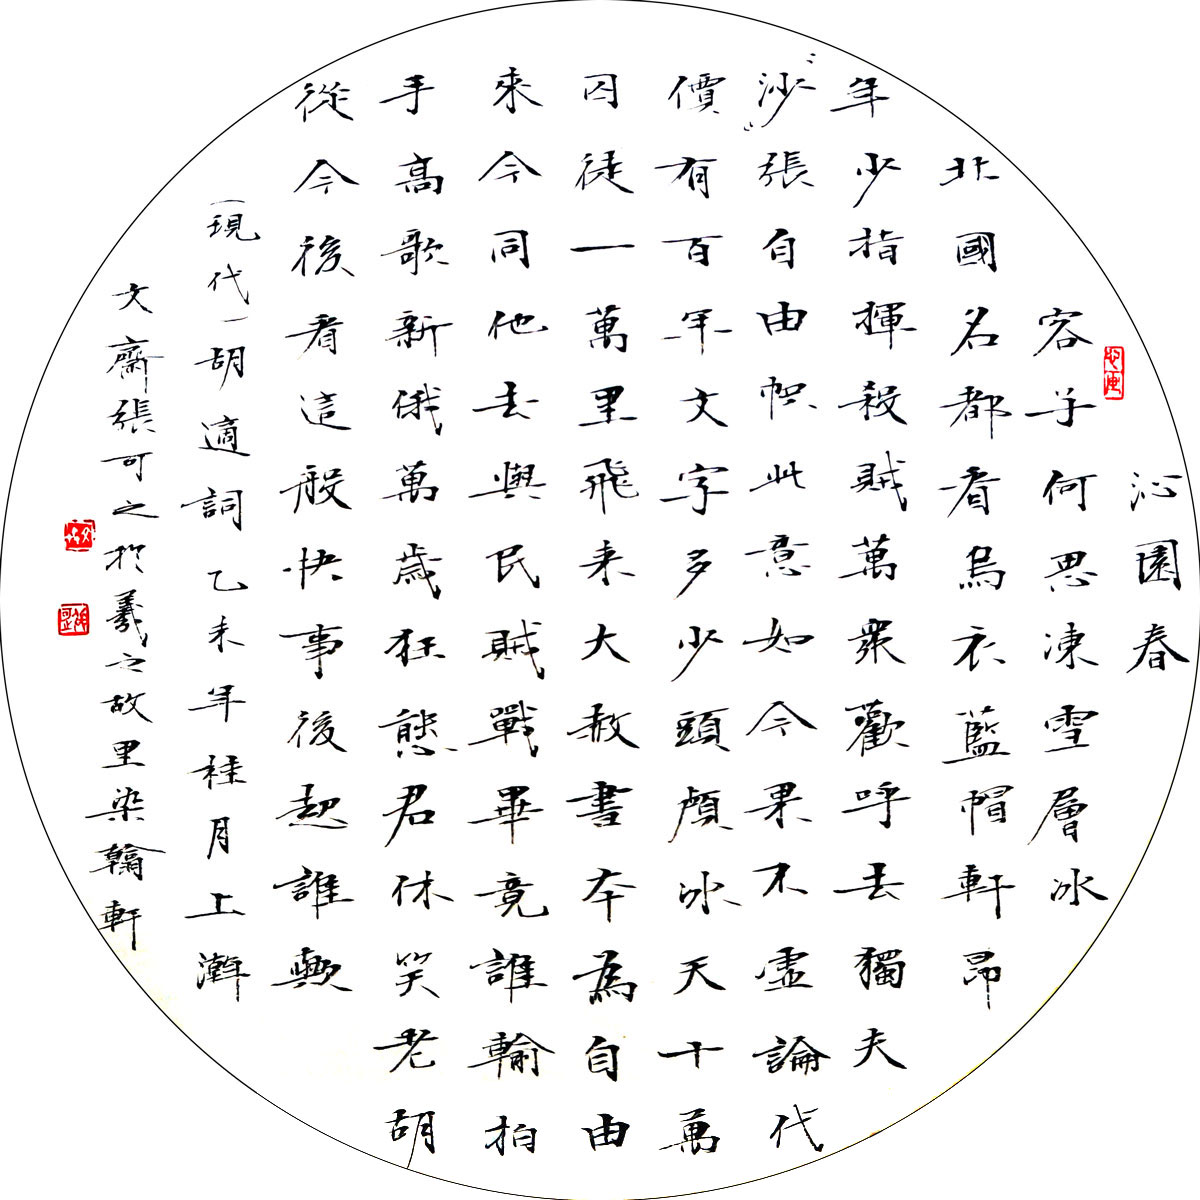 沁園春
客子何思凍雪層冰
北國名都看烏衣藍帽軒昂
年少指揮殺賊萬衆歡呼去獨夫
“沙”張自由幟此意如今果不虛論代
價有百年文字多少頭顱冰天十萬
囚徒一萬里飛來大赦書本為自由
來今同他去與民賊戰畢竟誰輸拍
手高歌新俄萬歲狂態君休笑老胡
從今後看這般快事後起誰歟
(現代)胡適詞乙未年桂月上澣
文齋張可之於羲之故里染翰軒